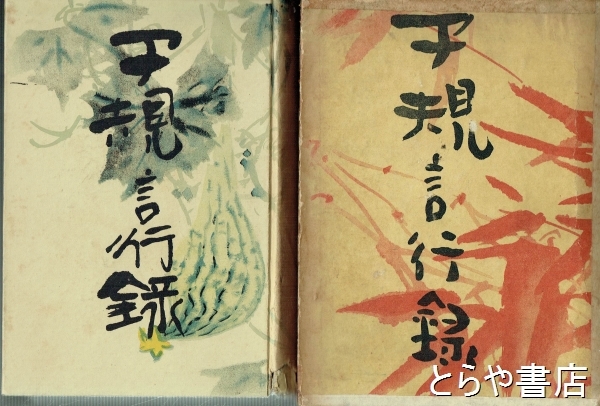 子規言行録
子規言行録
とらや書店